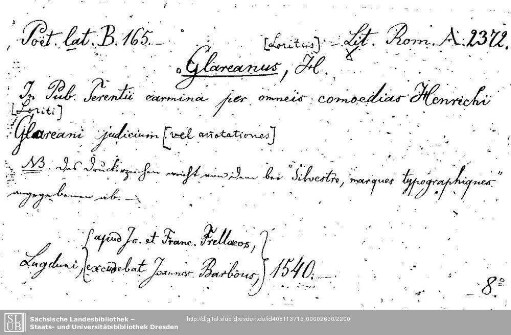 Poët. lat. B. 165.
[Loritus] Lit. Rom. A. 2372.
Glareanus, H.
In Pub. Terentii carmina per omneis comoedias Henrichi
[Loriti]
Glareani judicium [vel annotationes]
NB. das Druckzeichen weicht von dem bei "Silvestre, marques typographiques"
angegebenen ab. —
Lugduni, apud Jo. et Franc. Frellaeos, 1540.
excudebat Joannes Barbous,
8°
Sächsische Landesbibliothek –
Staats- und Universitätsbibliothek Dresden